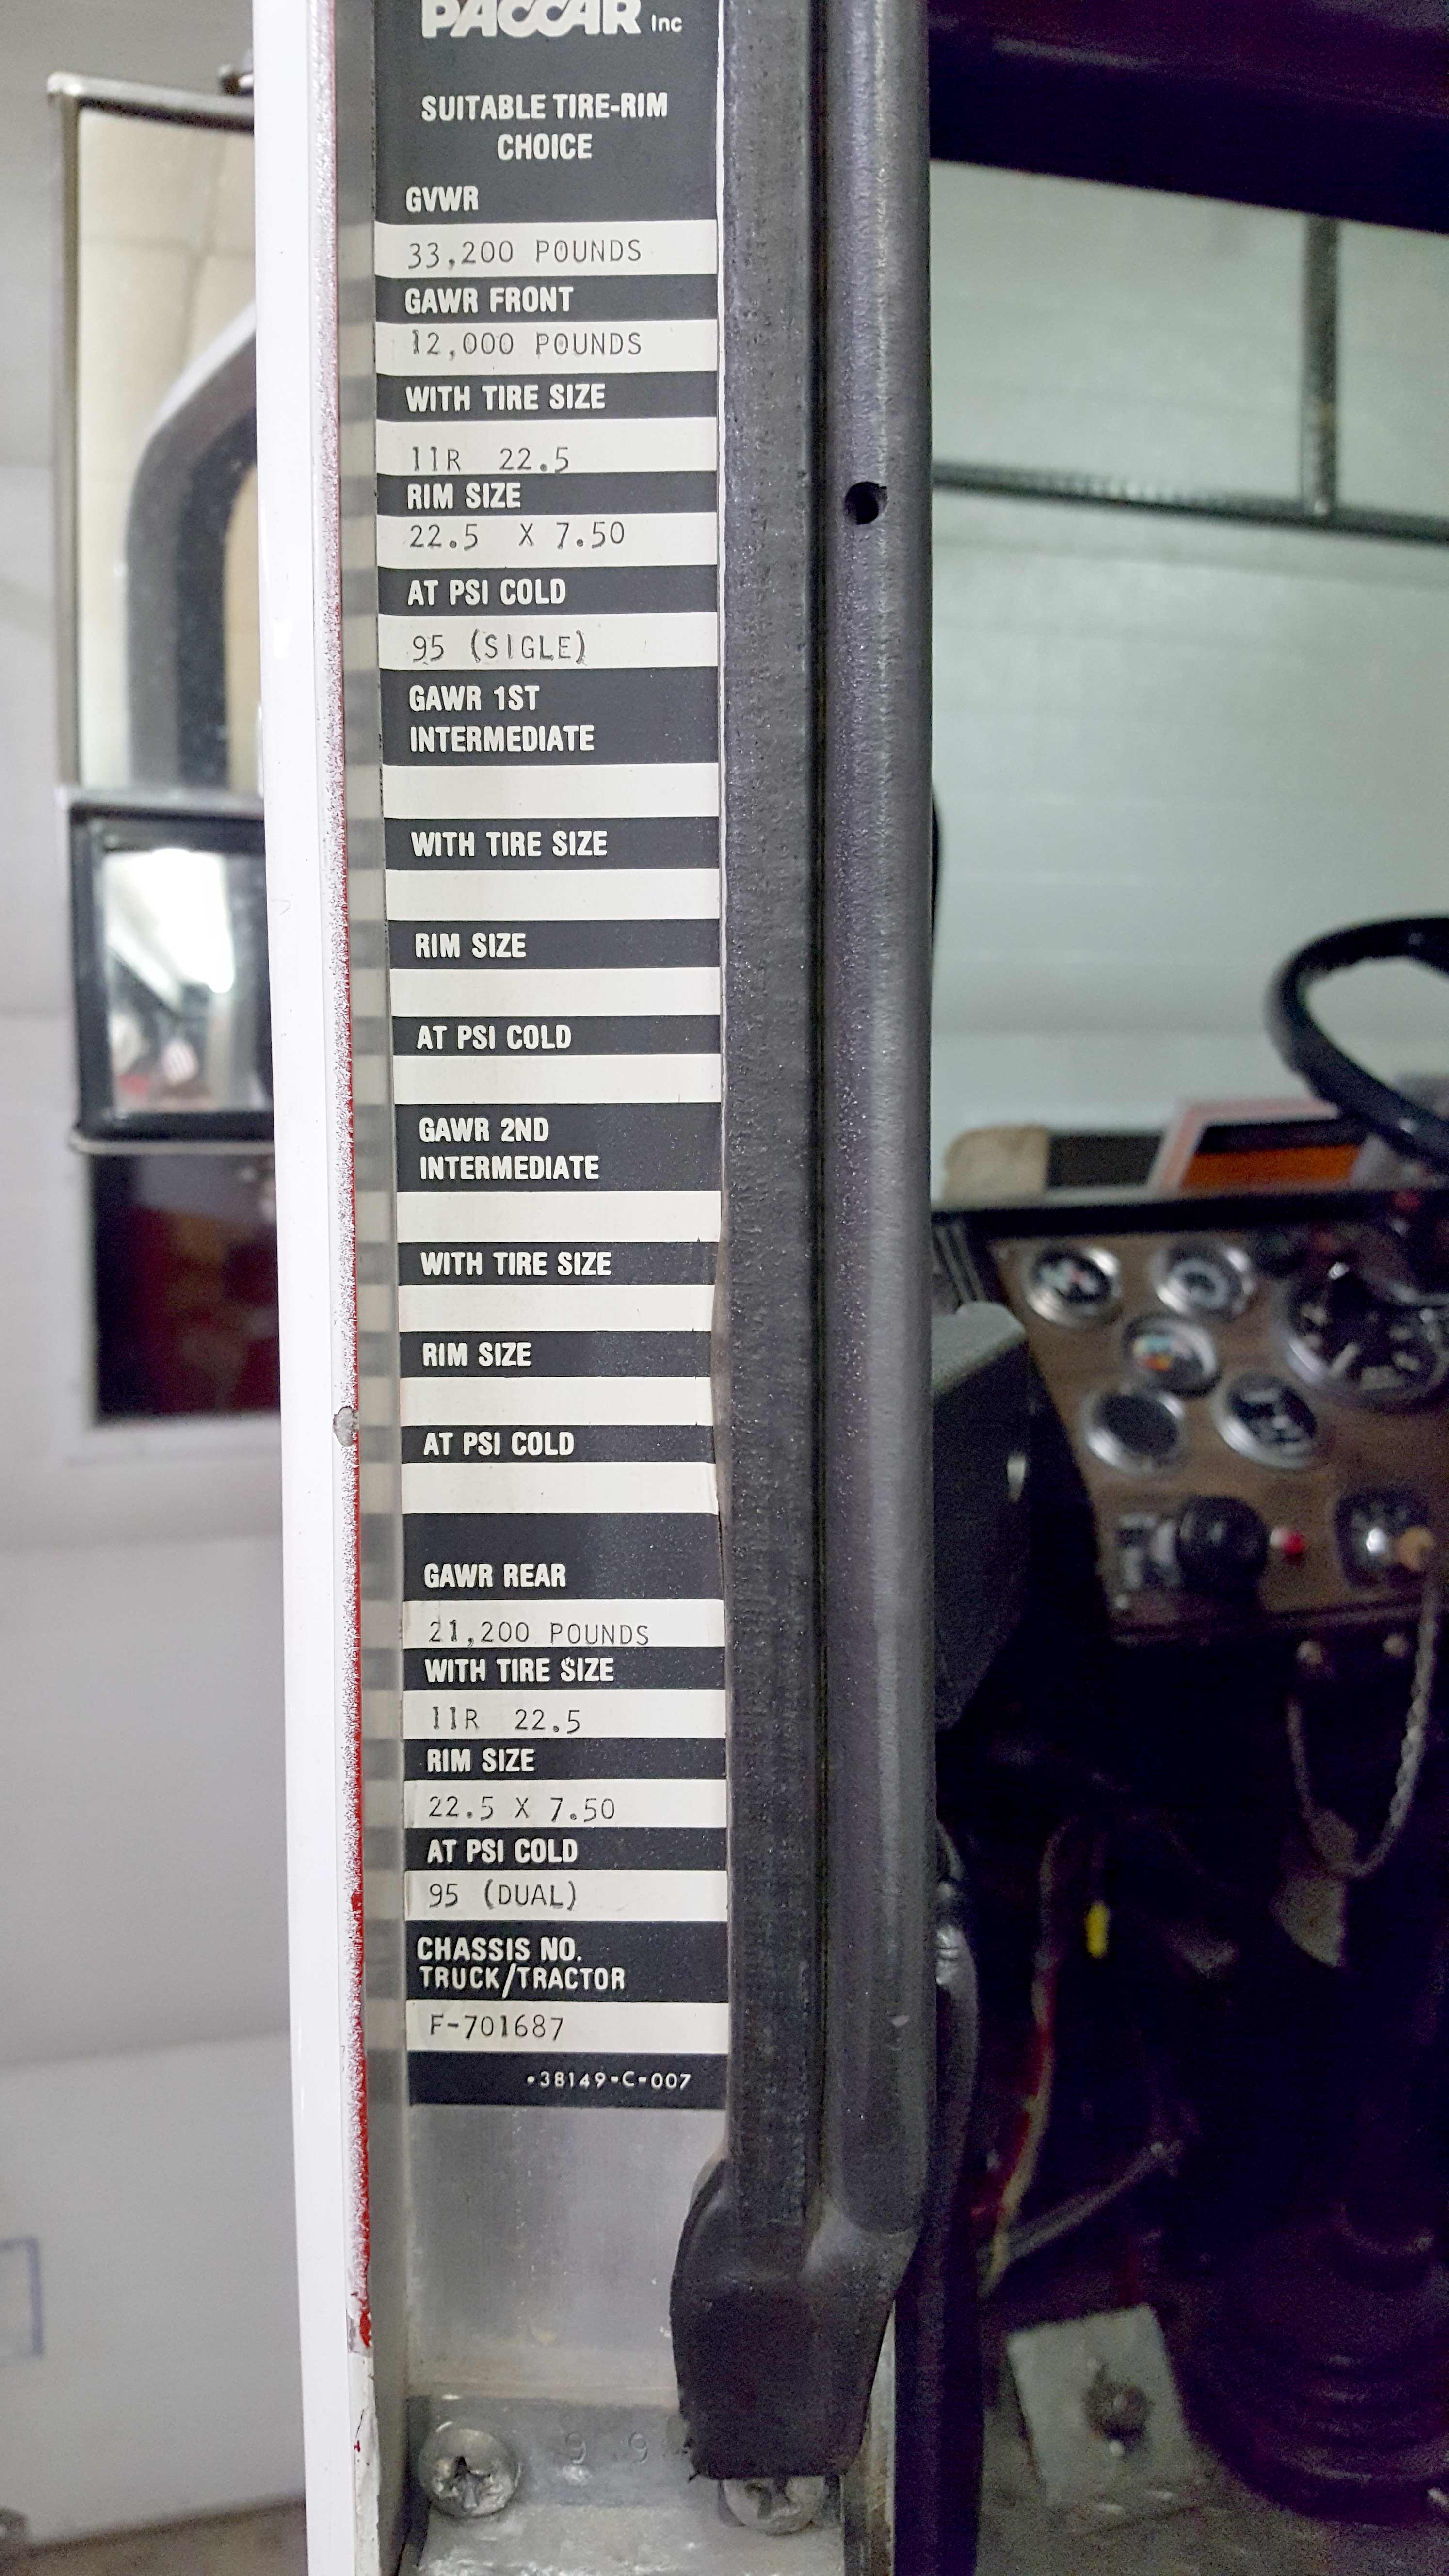 PACCAR Inc
SUITABLE TIRE-RIM
CHOICE
GVWR
33,200 POUNDS
GAWR FRONT
12,000 POUNDS
WITH TIRE SIZE
11R 22.5
RIM SIZE
22.5 X 7.50
AT PSI COLD
95 (SIGLE)
GAWR 1ST
INTERMEDIATE
WITH TIRE SIZE
RIM SIZE
AT PSI COLD
GAWR 2ND
INTERMEDIATE
WITH TIRE SIZE
RIM SIZE
AT PSI COLD
GAWR REAR
21,200 POUNDS
WITH TIRE SIZE
11R 22.5
RIM SIZE
22.5 X 7.50
AT PSI COLD
95 (DUAL)
CHASSIS NO.
TRUCK/TRACTOR
F-701687
•38149-C-007
9 9